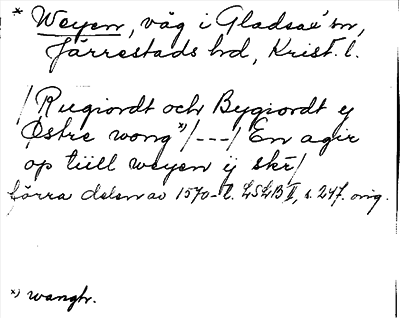 * Weyen, väg i Gladsax' sn,
Järrestads hd, Krist. l.
/Rugiordt och Bygiordt ÿ
Østre wong*)/---/ En agir
op tiill weyen ÿ skĩ/
förra delen av 1570-t. LSLB II, s. 247. orig.
*) wangh.